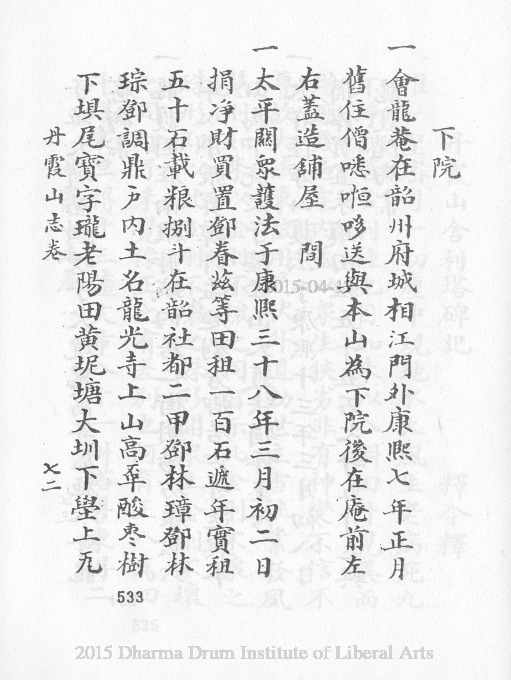 下院
一 會龍菴在韶州府城相江門外康熙七年正月
舊住僧㗭㖶哆送與本山為下院後在庵前左
右蓋造舖屋 間
一 太平關衆護法于康熙三十八年三月初二日
捐净財買置鄧春茲等田租一百石遞年實租
五十石載粮捌斗在韶社都二甲鄧林璋鄧林
琮鄧調鼎户内土名龍光寺上山高 酸枣樹
下埧尾寳字瓏老陽田黄坭塘大圳下壆上
丹霞山志卷 七二
533
2015-04-
2015 Dharma Drum Institute of Liberal Arts